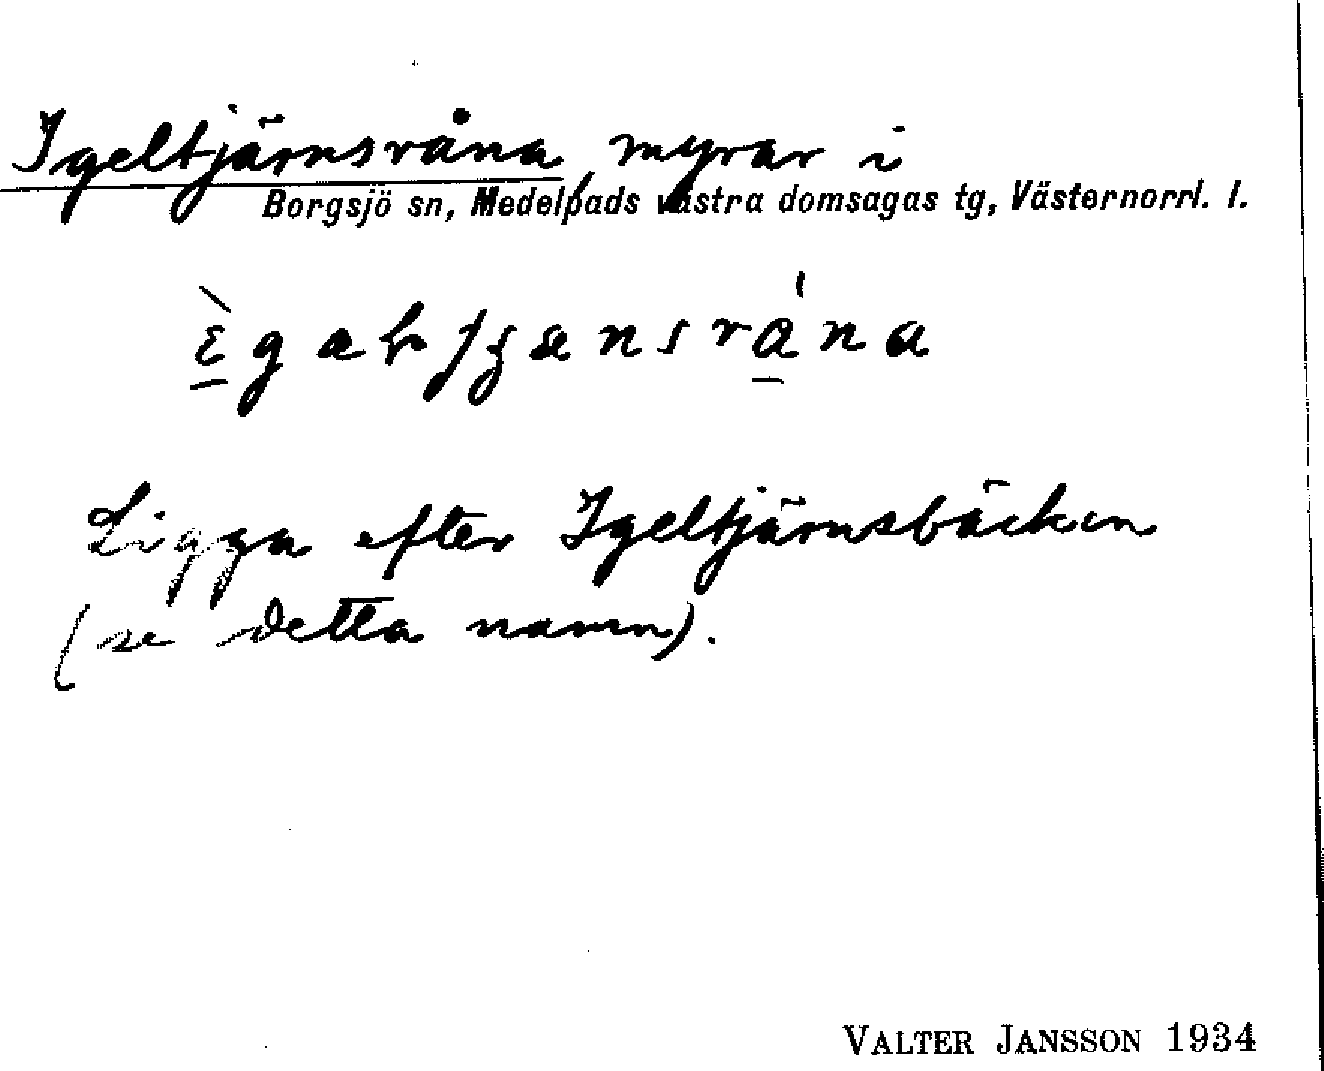 Igeltjärnsråna, myrar i
Borgsjö sn, Medelpads västra domsagas tg, Västernorrl. l.
Ligga efter Igeltjärnsbäcken
(se detta namn).
VALTER JANSSON 1934